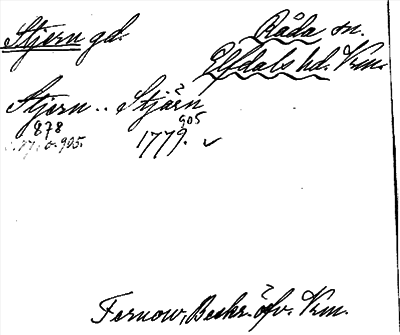 Stjern gd. Råda sn.
Elfdals hd. Vrm.
Stjern .. Stjärn
878 905
905. 1779. ✓
Fernow, Beskr. öfv. Vrm.